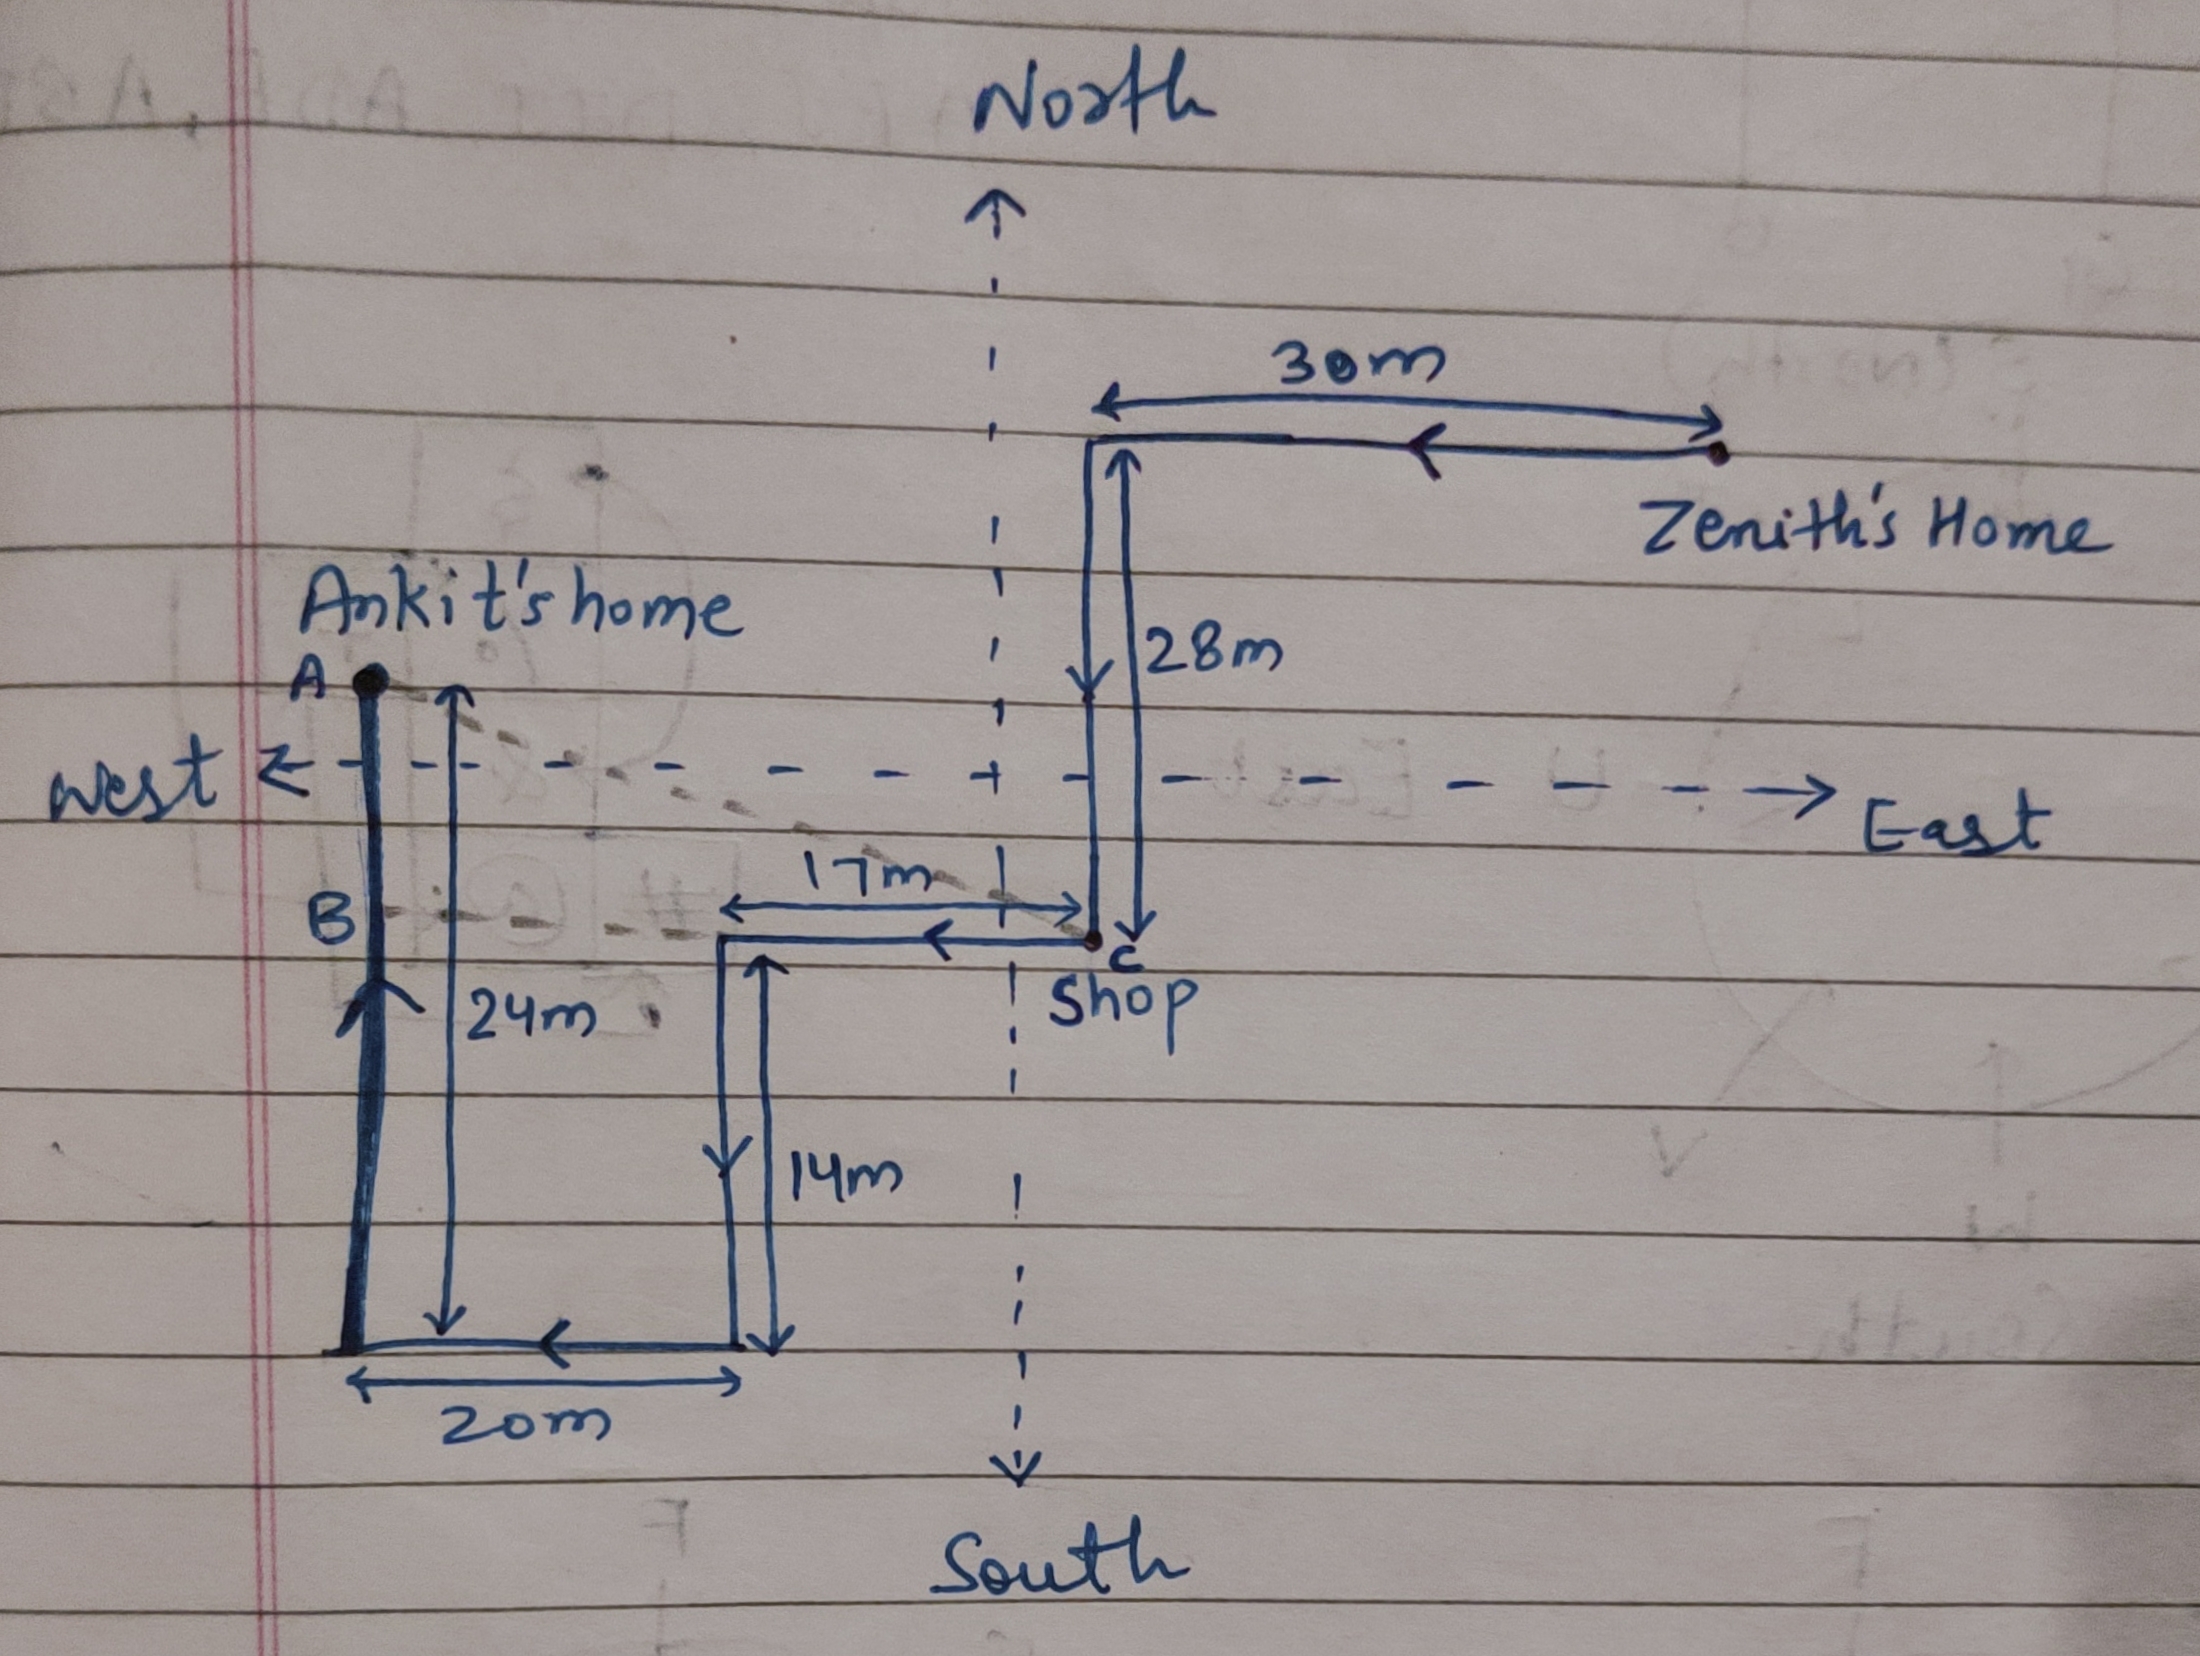 North
30m
Zenith's Home
28m
Ankit's home
A
West
East
17m
B
C
Shop
24m
14m
20m
South